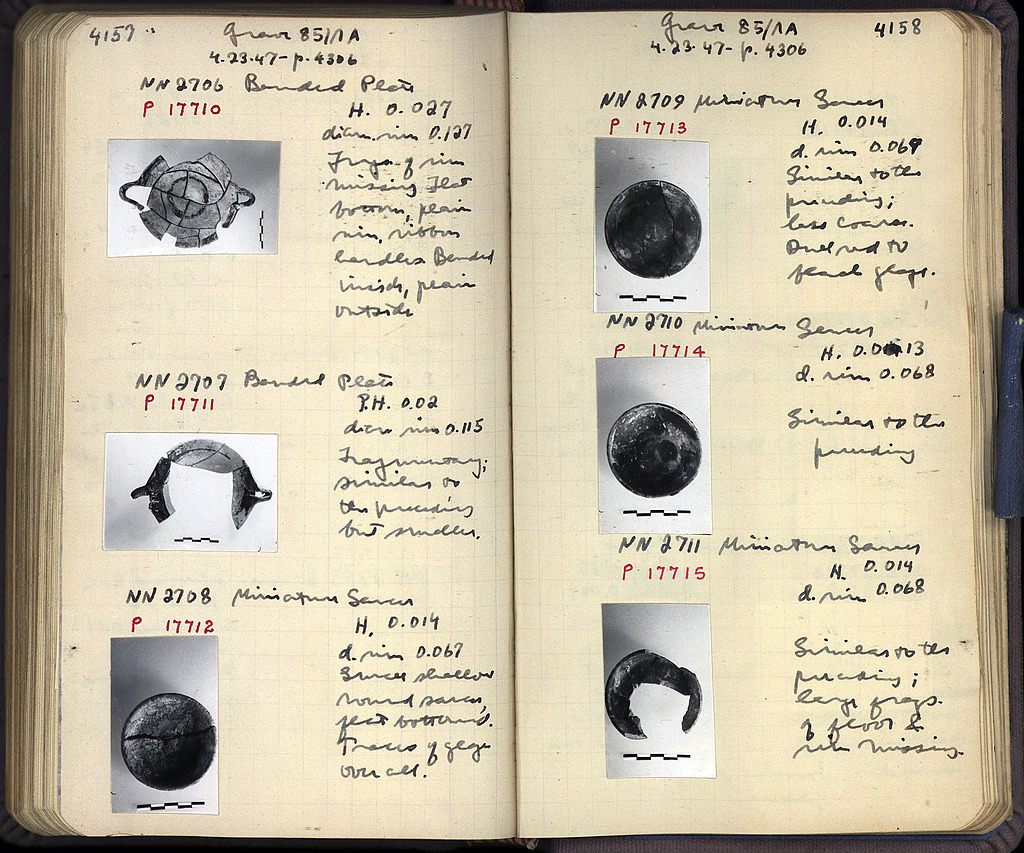 4157
Grave 85/ΛA
4.23.47 - p. 4306
NN 2706 Banded Plate
P 17710
H. 0.027
diam. rim 0.127
Frags of rim
missing Flat
bottom, plain
rim, ribbon
handles Banded
inside, plain
outside
NN 2707 Banded Plate
P 17711
P.H. 0.02
diam rim 0.115
Fragmentary;
similar to
the preceding
but smaller.
NN 2708 Miniature Saucer
P 17712
H. 0.014
d. rim 0.067
shallow
round saucer,
flat bottomed.
Traces of glaze
over all.
Grave 85/ΛA
4158
4.23.47 - p. 4306
NN 2709 Miniature Saucer
P 17713
H. 0.014
d. rim 0.067
Similar to the
preceding;
less coarse.
Dull red to
black glaze.
NN 2710 Miniature Saucer
P 17714
H. 0.013
d. rim 0.068
Similar to the
preceding
NN 2711 Miniature Saucer
P 17715
H. 0.014
d. rim 0.068
Similar to the
preceding;
large frags.
of floor &
rim missing.